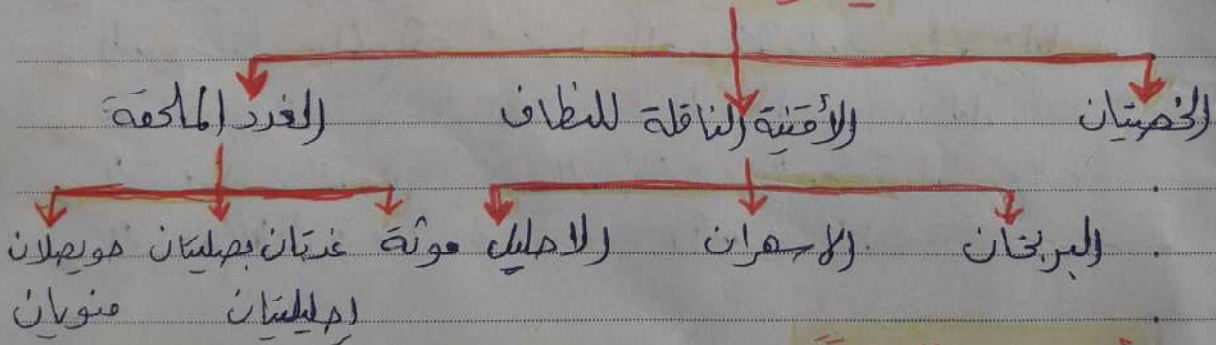 الخصيتان الأقنية الناقلة للنطاف الغدد الملحقة
البربخان الاسهران الاحليل موثة غدتان بصليتان حويصلان
احليليتان منويان